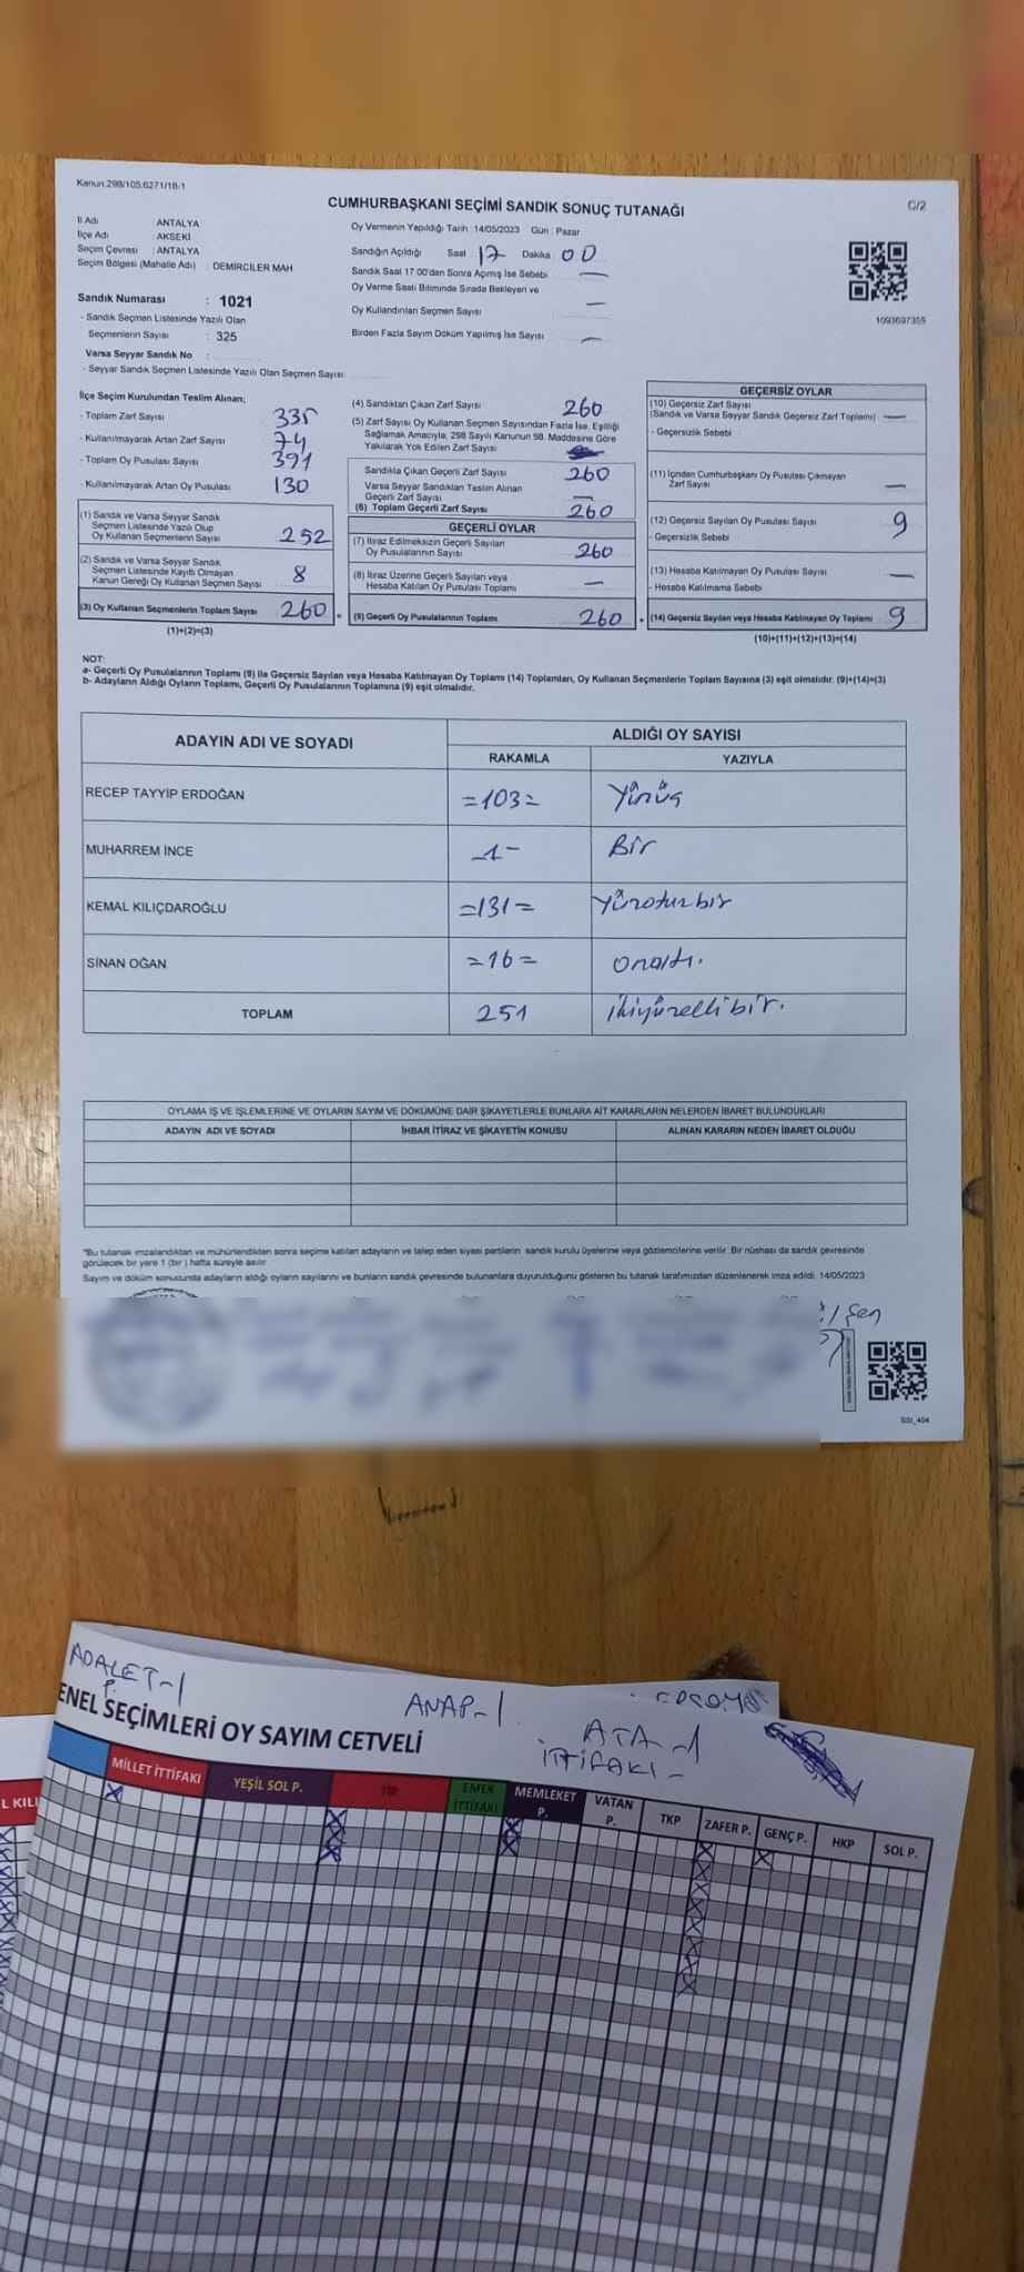 Kanun:298/105,6271/18/1
CUMHURBAŞKANI SEÇİMİ SANDIK SONUÇ TUTANAĞI
C/2
İl Adı : ANTALYA
İlçe Adı : AKSEKİ
Seçim Çevresi : ANTALYA
Seçim Bölgesi (Mahalle Adı) : DEMİRCİLER MAH
Sandık Numarası : 1021
- Sandık Seçmen Listesinde Yazılı Olan
Seçmenlerin Sayısı : 325
Varsa Seyyar Sandık No :
- Seyyar Sandık Seçmen Listesinde Yazılı Olan Seçmen Sayısı:
Oy Vermenin Yapıldığı Tarih :14/05/2023 Gün : Pazar
Sandığın Açıldığı Saat 17 Dakika 00
Sandık Saat 17:00'dan Sonra Açılmış İse Sebebi —
Oy Verme Saati Bitiminde Sırada Bekleyen ve
Oy Kullandırılan Seçmen Sayısı —
Birden Fazla Sayım Döküm Yapılmış İse Sayısı —
1093697355
İlçe Seçim Kurulundan Teslim Alınan;
- Toplam Zarf Sayısı 335
- Kullanılmayarak Artan Zarf Sayısı 74
- Toplam Oy Pusulası Sayısı 391
- Kullanılmayarak Artan Oy Pusulası 130
(1) Sandık ve Varsa Seyyar Sandık
Seçmen Listesinde Yazılı Olup
Oy Kullanan Seçmenlerin Sayısı 252
(2) Sandık ve Varsa Seyyar Sandık
Seçmen Listesinde Kayıtlı Olmayan
Kanun Gereği Oy Kullanan Seçmen Sayısı 8
(3) Oy Kullanan Seçmenlerin Toplam Sayısı 260 =
(1)+(2)=(3)
(4) Sandıktan Çıkan Zarf Sayısı 260
(5) Zarf Sayısı Oy Kullanan Seçmen Sayısından Fazla İse, Eşitliği
Sağlamak Amacıyla, 298 Sayılı Kanunun 98. Maddesine Göre
Yakılarak Yok Edilen Zarf Sayısı
Sandıkta Çıkan Geçerli Zarf Sayısı 260
Varsa Seyyar Sandıktan Teslim Alınan
Geçerli Zarf Sayısı —
(6) Toplam Geçerli Zarf Sayısı 260
GEÇERLİ OYLAR
(7) İtiraz Edilmeksizin Geçerli Sayılan
Oy Pusulalarının Sayısı 260
(8) İtiraz Üzerine Geçerli Sayılan veya
Hesaba Katılan Oy Pusulası Toplamı —
(9) Geçerli Oy Pusulalarının Toplamı 260 +
GEÇERSİZ OYLAR
(10) Geçersiz Zarf Sayısı
(Sandık ve Varsa Seyyar Sandık Geçersiz Zarf Toplamı) —
- Geçersizlik Sebebi
(11) İçinden Cumhurbaşkanı Oy Pusulası Çıkmayan
Zarf Sayısı —
(12) Geçersiz Sayılan Oy Pusulası Sayısı 9
- Geçersizlik Sebebi
(13) Hesaba Katılmayan Oy Pusulası Sayısı —
- Hesaba Katılmama Sebebi
(14) Geçersiz Sayılan veya Hesaba Katılmayan Oy Toplamı 9
(10)+(11)+(12)+(13)=(14)
NOT:
a- Geçerli Oy Pusulalarının Toplamı (9) ile Geçersiz Sayılan veya Hesaba Katılmayan Oy Toplamı (14) Toplamları, Oy Kullanan Seçmenlerin Toplam Sayısına (3) eşit olmalıdır. (9)+(14)=(3)
b- Adayların Aldığı Oyların Toplamı, Geçerli Oy Pusulalarının Toplamına (9) eşit olmalıdır.
ADAYIN ADI VE SOYADI
ALDIĞI OY SAYISI
RAKAMLA YAZIYLA
RECEP TAYYİP ERDOĞAN =103= Yüzüç
MUHARREM İNCE -1- Bir
KEMAL KILIÇDAROĞLU =131= Yüzotuzbir
SİNAN OĞAN =16= onaltı.
TOPLAM 251 ikiyüzellibir.
OYLAMA İŞ VE İŞLEMLERİNE VE OYLARIN SAYIM VE DÖKÜMÜNE DAİR ŞİKAYETLERLE BUNLARA AİT KARARLARIN NELERDEN İBARET BULUNDUKLARI
ADAYIN ADI VE SOYADI İHBAR İTİRAZ VE ŞİKAYETİN KONUSU ALINAN KARARIN NEDEN İBARET OLDUĞU
*Bu tutanak imzalandıktan ve mühürlendikten sonra seçime katılan adayların ve talep eden siyasi partilerin sandık kurulu üyelerine veya gözlemcilerine verilir. Bir nüshası da sandık çevresinde
görülecek bir yere 1 (bir) hafta süreyle asılır.
Sayım ve döküm sonucunda adayların aldığı oyların sayılarını ve bunların sandık çevresinde bulunanlara duyurulduğunu gösteren bu tutanak tarafımızdan düzenlenerek imza edildi. 14/05/2023
Şen
ADALET-1
P.
ANAP-1
ATA-1
İTTİFAKI-
ENEL SEÇİMLERİ OY SAYIM CETVELİ
L KILI
MİLLET İTTİFAKI
YEŞİL SOL P.
TİP
EMEK
İTTİFAKI
MEMLEKET
P.
VATAN
P.
TKP
ZAFER P.
GENÇ P.
HKP
SOL P.